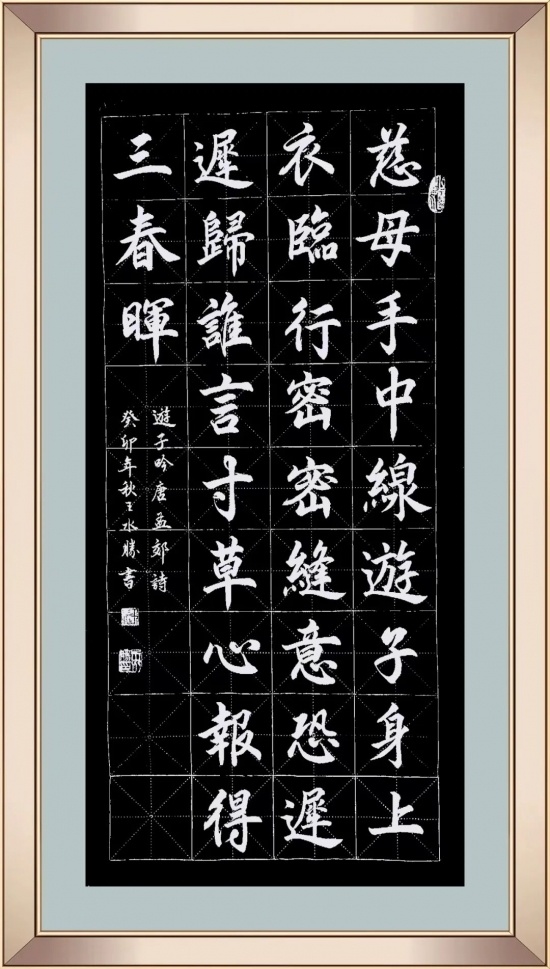 慈母手中線遊子身上
衣臨行密密縫意恐遲
遲歸誰言寸草心報得
三春暉
遊子吟唐孟郊詩
癸卯年秋王水勝書